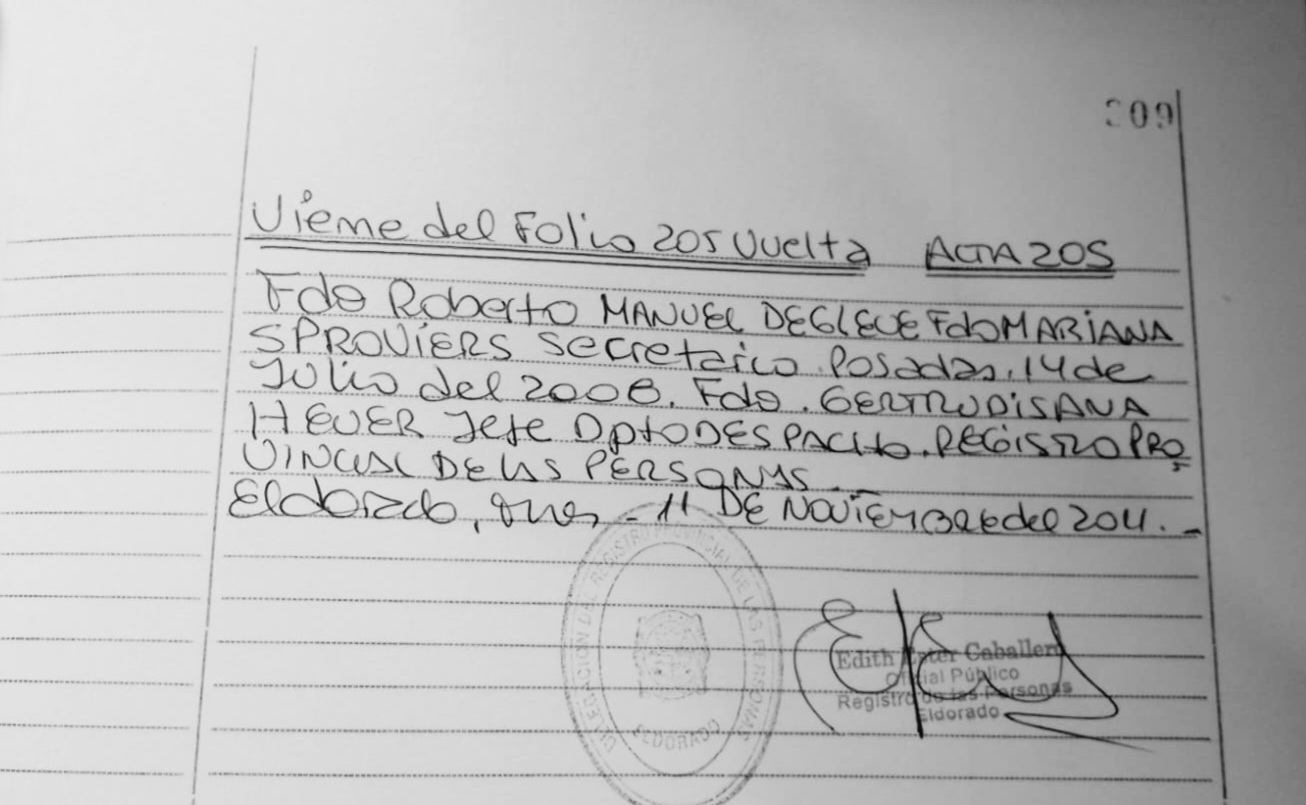 209
Viene del Folio 205 Vuelta ACTA 205
Fdo Roberto MANUEL DEGLEUE Fdo MARIANA
SPROVIERS Secretario Posadas, 14 de
Julio del 2008. Fdo. GERTRUDIS ANA
HEUER Jefe Dpto DESPACHO. REGISTRO PRO
VINCIAL DE LAS PERSONAS.
Eldorado, Mnes - 11 DE NOVIEMBRE del 2011. -
DELEGACION DEL REGISTRO PROVINCIAL DE LAS PERSONAS
ELDORADO
Edith Ester Caballero
Oficial Público
Registro de las Personas
Eldorado